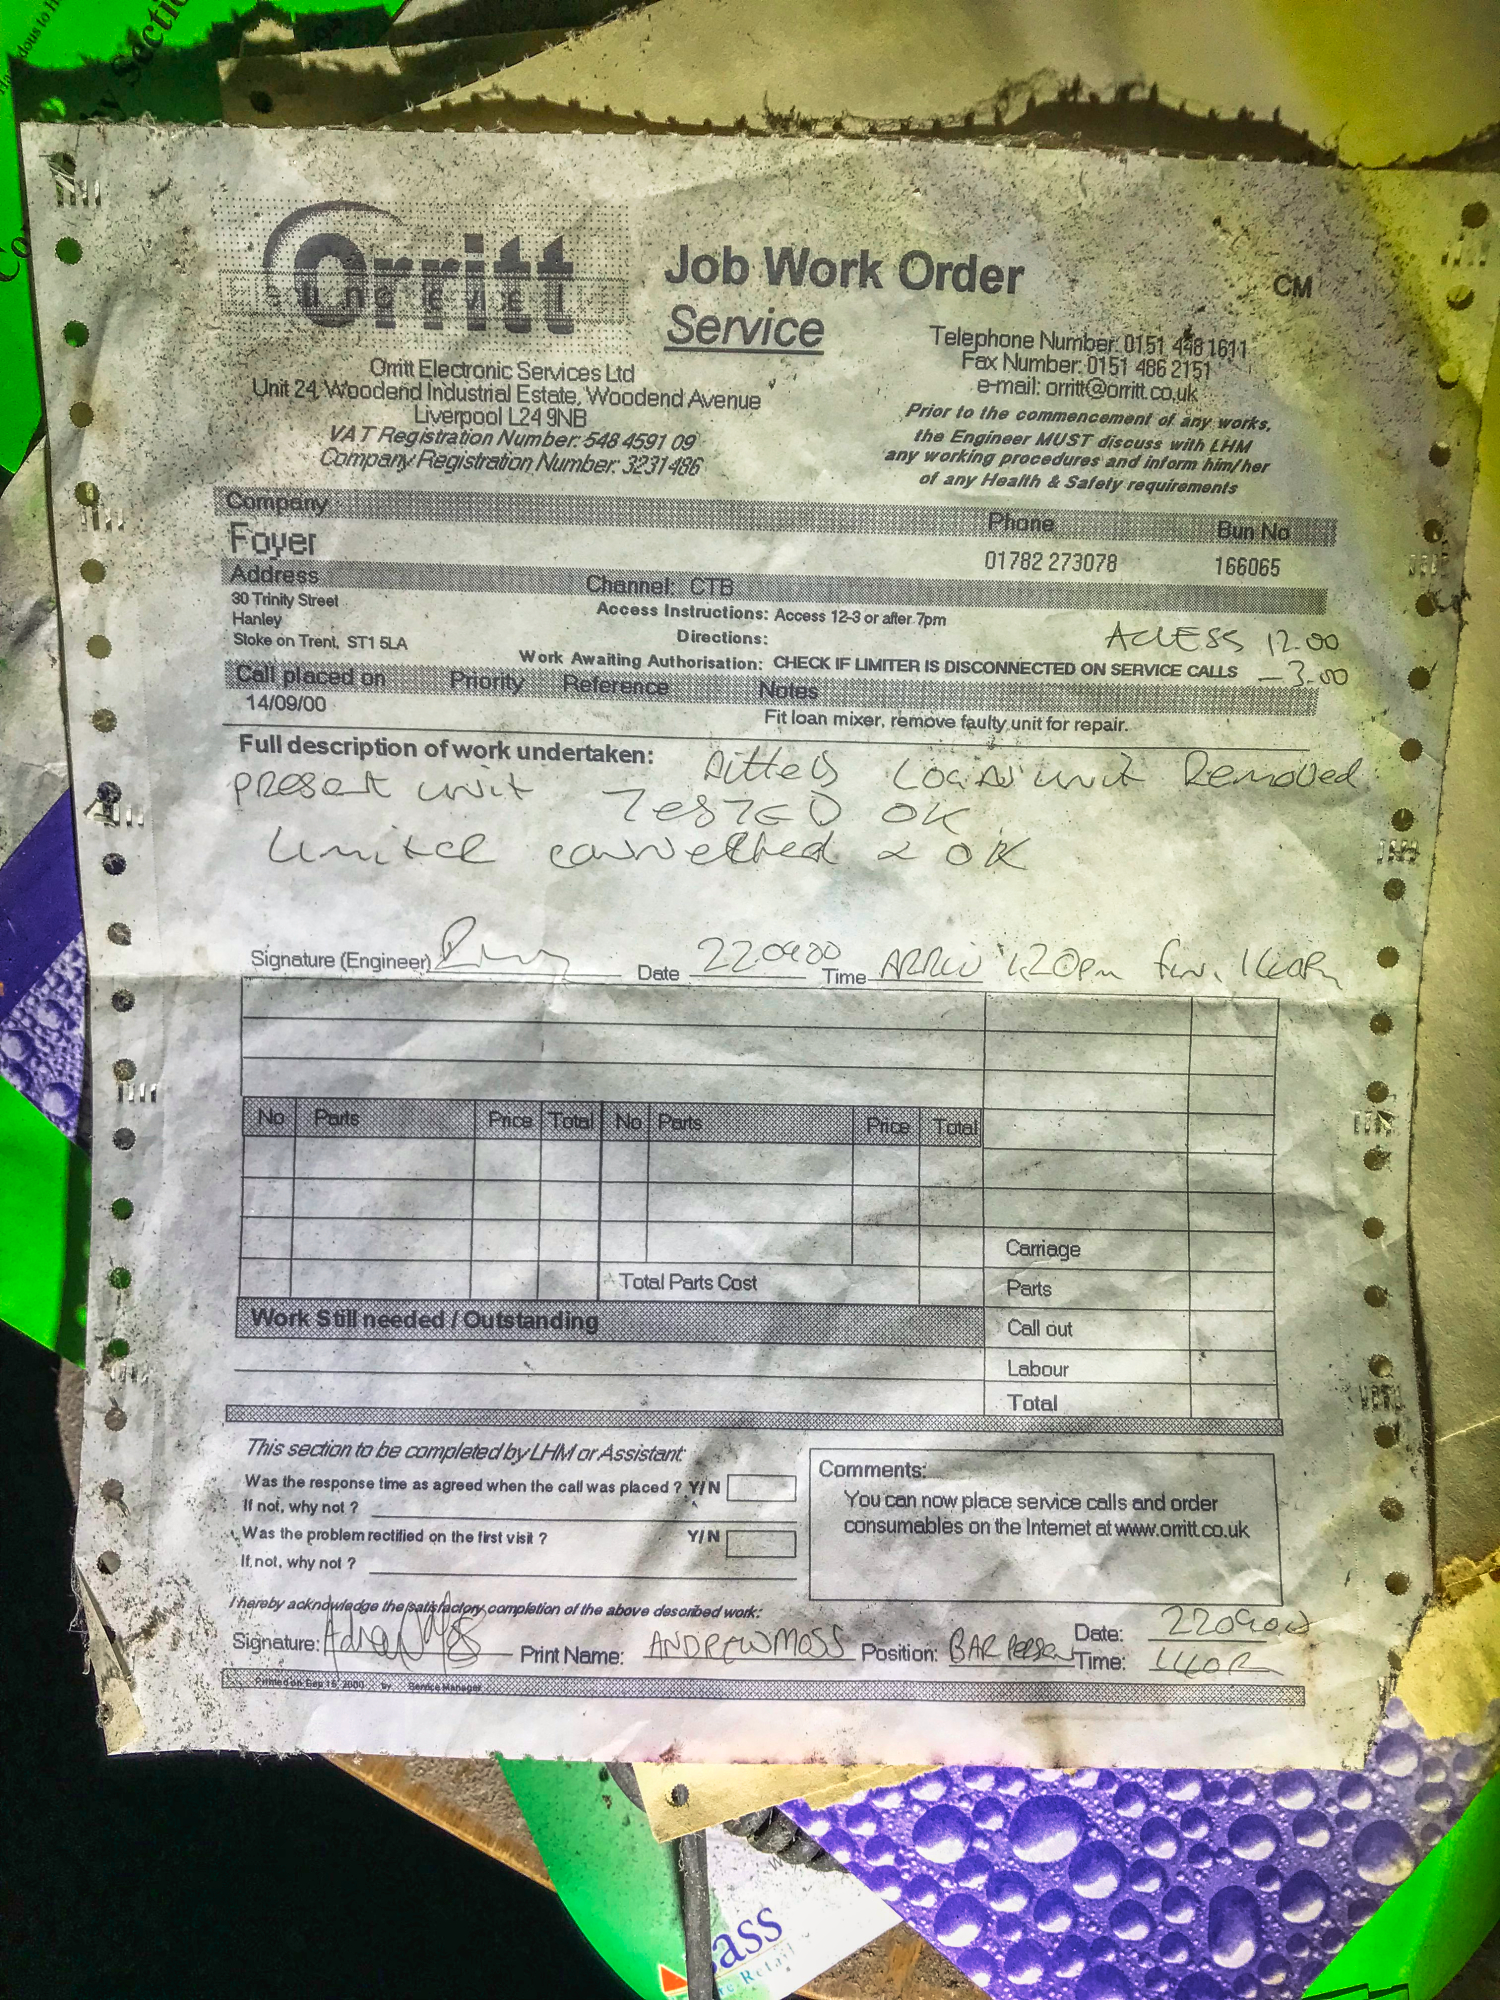 Orritt
Job Work Order
CM
Service
Orritt Electronic Services Ltd
Unit 24, Woodend Industrial Estate, Woodend Avenue
Liverpool L24 9NB
VAT Registration Number: 548 4591 09
Company Registration Number: 3231486
Telephone Number: 0151 448 1611
Fax Number: 0151 486 2151
e-mail: orritt@orritt.co.uk
Prior to the commencement of any works,
the Engineer MUST discuss with LHM
any working procedures and inform him/her
of any Health & Safety requirements
Company Phone Bun No
Foyer 01782 273078 166065
Address Channel: CTB
30 Trinity Street
Hanley
Stoke on Trent, ST1 5LA
Access Instructions: Access 12-3 or after 7pm
Directions:
Work Awaiting Authorisation: CHECK IF LIMITER IS DISCONNECTED ON SERVICE CALLS
ACCESS 12.00
- 3.00
Call placed on Priority Reference Notes
14/09/00 Fit loan mixer, remove faulty unit for repair.
Full description of work undertaken: Fitted Loan unit Removed
present unit TESTED OK
Limiter connected & OK
Signature (Engineer) Date 220900 Time ARRIV 1.20pm fin. 140PM
No Parts Price Total No Parts Price Total
Total Parts Cost
Carriage
Parts
Call out
Labour
Total
Work Still needed / Outstanding
This section to be completed by LHM or Assistant:
Was the response time as agreed when the call was placed ? Y/N
If not, why not ?
Was the problem rectified on the first visit ? Y/N
If not, why not ?
Comments:
You can now place service calls and order
consumables on the Internet at www.orritt.co.uk
I hereby acknowledge the satisfactory completion of the above described work:
Signature: Print Name: ANDREW MOSS Position: BAR PERSON
Date: 220900
Time: 140P
Printed on Sep 15, 2000 by Service Manager
ass
Retail